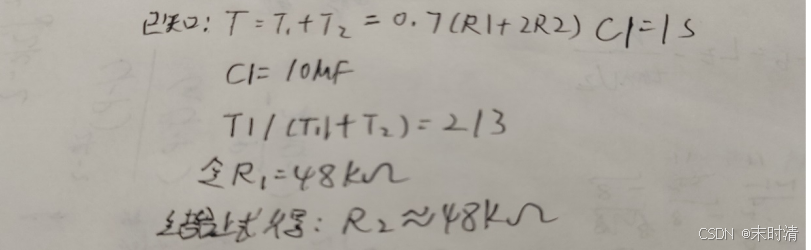 已知: T = T1 + T2 = 0.7(R1+2R2) C1=1S
C1= 10MF
T1/(T1+T2)=2/3
令R1=48kΩ
结合上式得: R2≈48kΩ
CSDN @末时清